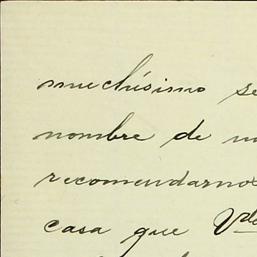 muchísimo se
nombre de
recomendarnos
casa que Vds